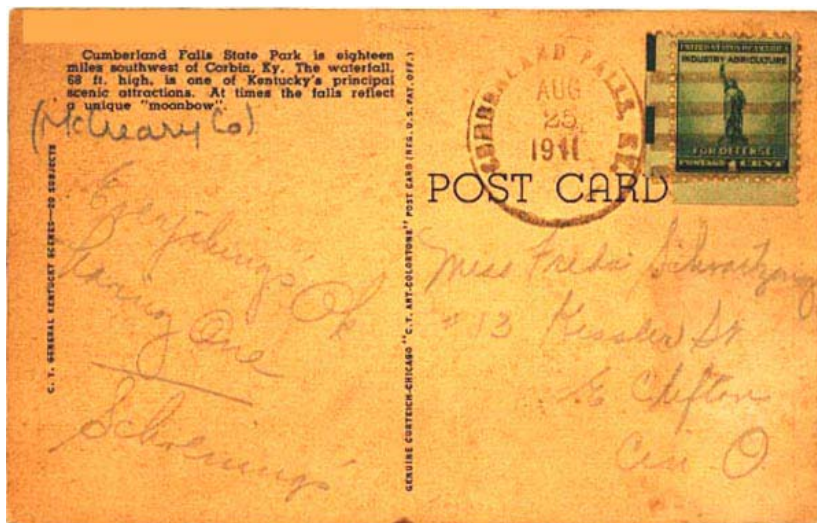 Cumberland Falls State Park is eighteen
miles southwest of Corbin, Ky. The waterfall,
68 ft. high, is one of Kentucky's principal
scenic attractions. At times the falls reflect
a unique "moonbow".
(McCreary Co)
Everything's Ok
Having One
Schoenings'
C. T. GENERAL KENTUCKY SCENES—20 SUBJECTS
GENUINE CURTEICH-CHICAGO "C. T. ART-COLORTONE" POST CARD (REG. U. S. PAT. OFF.)
CUMBERLAND FALLS, KY.
AUG
25
1941
UNITED STATES OF AMERICA
INDUSTRY AGRICULTURE
FOR DEFENSE
POSTAGE 1 CENT
POST CARD
Miss Freda
Kessler St
E Clifton
Cin O